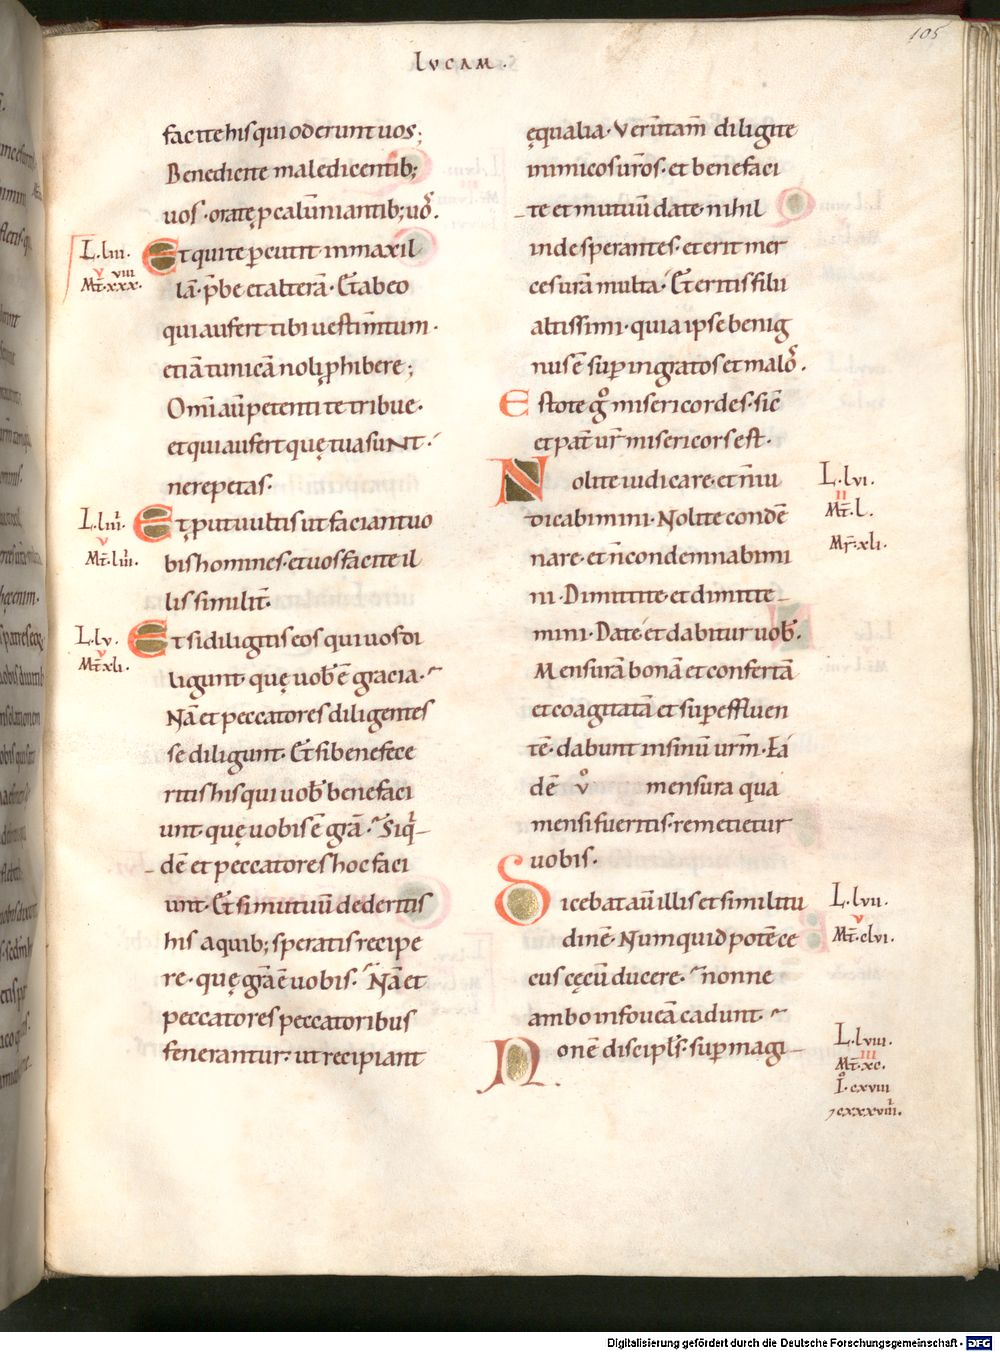 105
LVCAM.
facite his qui oderunt uos;
Benedicite maledicentib;
uos. orate p calũniantib; uoᷤ.
Et qui te peutit in maxil
lã. p̃be et alterã. Et ab eo
qui aufert tibi uestim̃tum.
etiã tunicã noli phibere;
Om̃i aũ petenti te tribue.
et qui aufert quę tua suNt.
ne repetas.
Et put uultis ut faciant uo
bis homines. et uos facite il
lis similit̃.
Et si diligitis eos qui uos di
ligunt. quę uob̃ ẽ gracia.
Nã et peccatores diligentes
se diligunt. Et si benefece
ritis his qui uob̃ benefaci
unt. quę uobis ẽ grã. Siq̃
dẽ et peccatores hoc faci
unt. Et si mutuũ dederitis
his a quib; speratis recipe
re. quę grã ẽ uobis. Nã et
peccatores peccatoribus
fenerantur. ut recipiant
L.liii.
v
viii
Mt̃.xxx.
L.liiii.
v
Mt̃.liiii.
L.lv.
v
Mt̃.xli.
ęqualia. Verũtam̃ diligite
inimicos ur̃os. et benefaci
te et mutuũ date. nihil
inde sperantes. et erit mer
ces ur̃a multa. Et eritis filii
altissimi. quia ipse benig
nus ẽ sup ingratos et maloᷤ.
Estote gͦ misericordes. sic̃
et pat̃ ur̃ misericors est.
Nolite iudicare. et ñ iu
dicabimini. Nolite condẽ
nare. et ñ condemnabimi
ni. Dimittite. et dimitte
mini. Date et dabitur uob̃.
Mensurã bonã et confertã
et coagitatã et sup effluen
tẽ. dabunt in sinũ ur̃m. Eã
dẽ vͦ mensura qua
mensi fueritis. remetietur
uobis.
Dicebat aũ illis et similitu
dinẽ. Numquid potẽ ce
cus cęcũ ducere. nonne
ambo in foueã cadunt.
Non ẽ discipls̃. sup magi
L.lvi.
ii
Mt̃.l.
Mr̃.xli.
L.lvii.
v
Mt̃.clvi.
L.lviii.
iii
Mt̃.xc.
Iͦ.cxviii
⁊cxxxviiii.
Digitalisierung gefördert durch die Deutsche Forschungsgemeinschaft - DFG